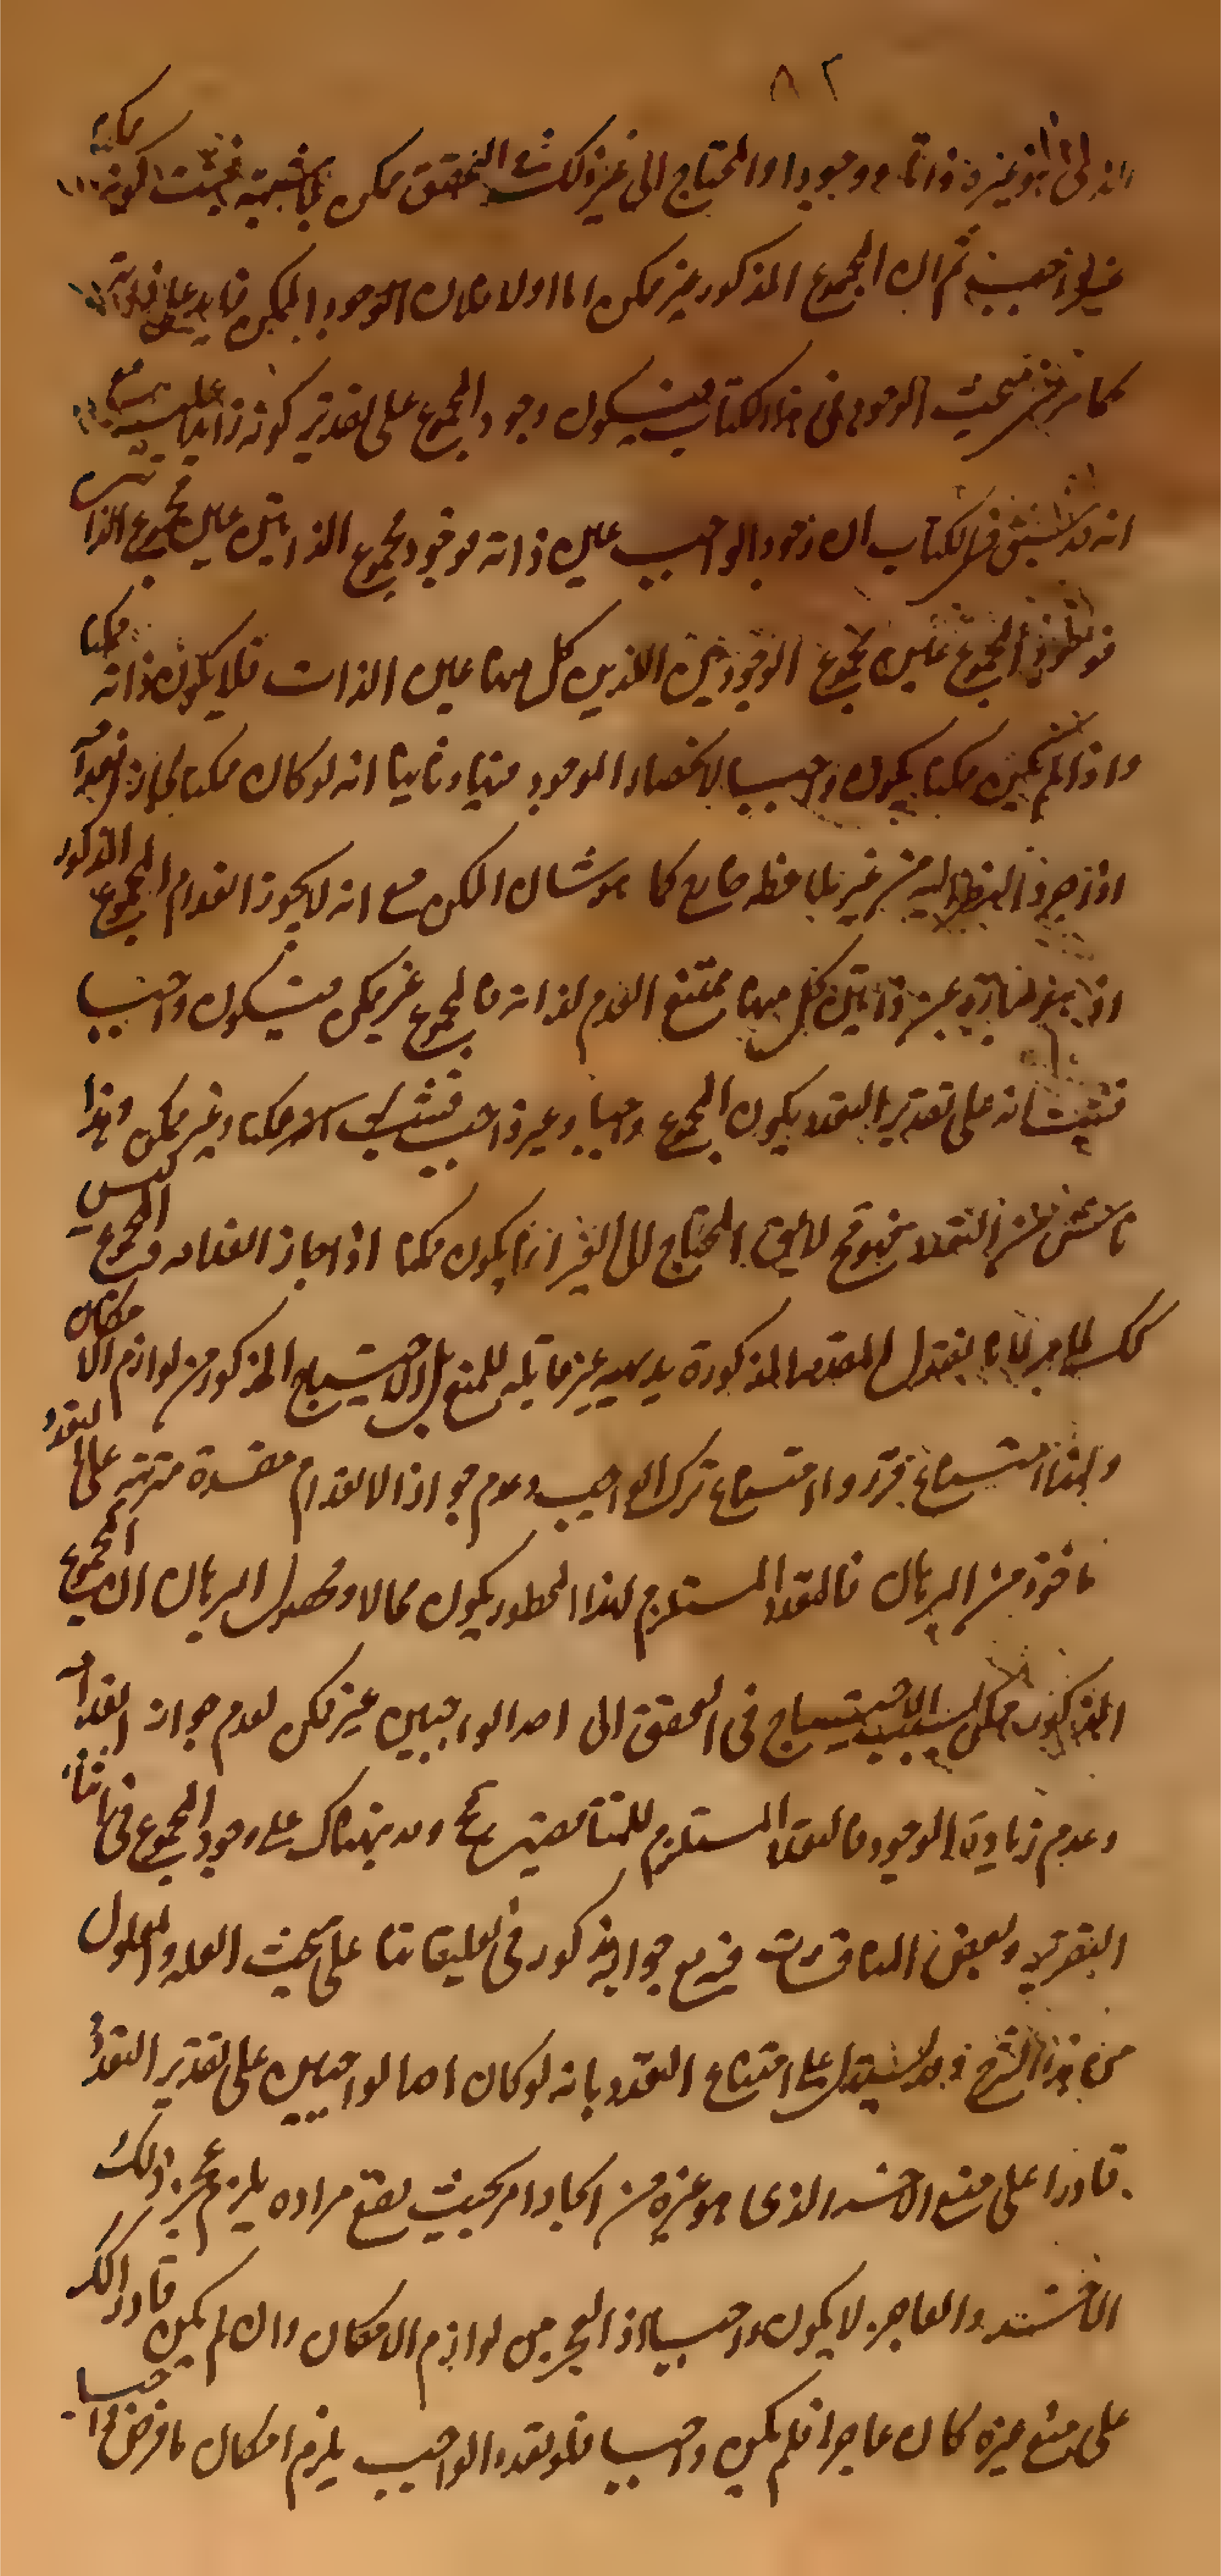 ٨٢
الذي هو غيره ذاتا ووجودا والمحتاج الى غيره في التحقق ممكن بالبديهة فثبت كونه ممكنا
غير واجب ثم ان المجموع المذكور غير ممكن اما اولا فلان الوجود الممكن زايد على ذاته
كما مر في بحث الوجود في هذا الكتاب فيكون وجود المجموع على تقدير كونه زايدا عليه مع
انه قد ثبت في الكتاب ان وجود الواجب عين ذاته فوجود مجموع الذاتين عين مجموع الذاتين
فوجود المجموع عين مجموع الوجودين اللذين كل منهما عين الذات فلا يكون ذاته ممكنا
واذا لم يكن ممكنا يكون واجبا لانحصار الموجود فيهما وثانيا انه لو كان ممكنا لجاز انعدامه
اذا جرد النظر اليه من غير ملاحظة صانع كما هو شان الممكن مع انه لا يجوز انعدام المجموع المذكور
اذ هو عبارة عن ذاتين كل منهما ممتنع العدم لذاته فالمجموع غير ممكن فيكون واجبا
فثبت انه على تقدير التعدد يكون المجموع واجبا وغير واجب ممكنا وغير ممكن وهذا
ناش من التعدد لا يق المحتاج الى الغير انما يكون ممكنا اذا جاز انعدامه والمجموع ليس
كك لما مر لانا نقول المقدمة المذكورة بديهية غير قابلة للمنع بل الاحتياج المذكور من لوازم الامكان
ولهذا امتناع ترك الواجب وعدم جواز الانعدام مفسدة مترتبة على التعدد
ماخوذ من البرهان فالتعدد المستلزم لهذا المحظور يكون محالا ومحصل البرهان ان المجموع
المذكور ممكن بسبب الاحتياج في التحقق الى احد الواجبين غير ممكن لعدم جواز انعدامه
وعدم زيادة الوجود فالتعدد المستلزم للمتناقضين مح وقد نبهناك على وجود المجموع في اثناء
التقرير ولبعض المناقشات فيه مع جوابه مذكور في تعليقاتنا على بحث العلة والمعلول
من هذا الشرح وقد يستدل على امتناع التعدد بانه لو كان احد الواجبين على تقدير التعدد
قادرا على منع الاخر الذي هو غيره من ايجاد امر بحيث يقع مراده يلزم عجز ذلك
الاخر والعاجز لا يكون واجبا اذ العجز من لوازم الامكان وان لم يكن قادرا كك
على منع غيره كان عاجزا فلم يكن واجبا فلو تعدد الواجب يلزم امكان ما فرض واجبا